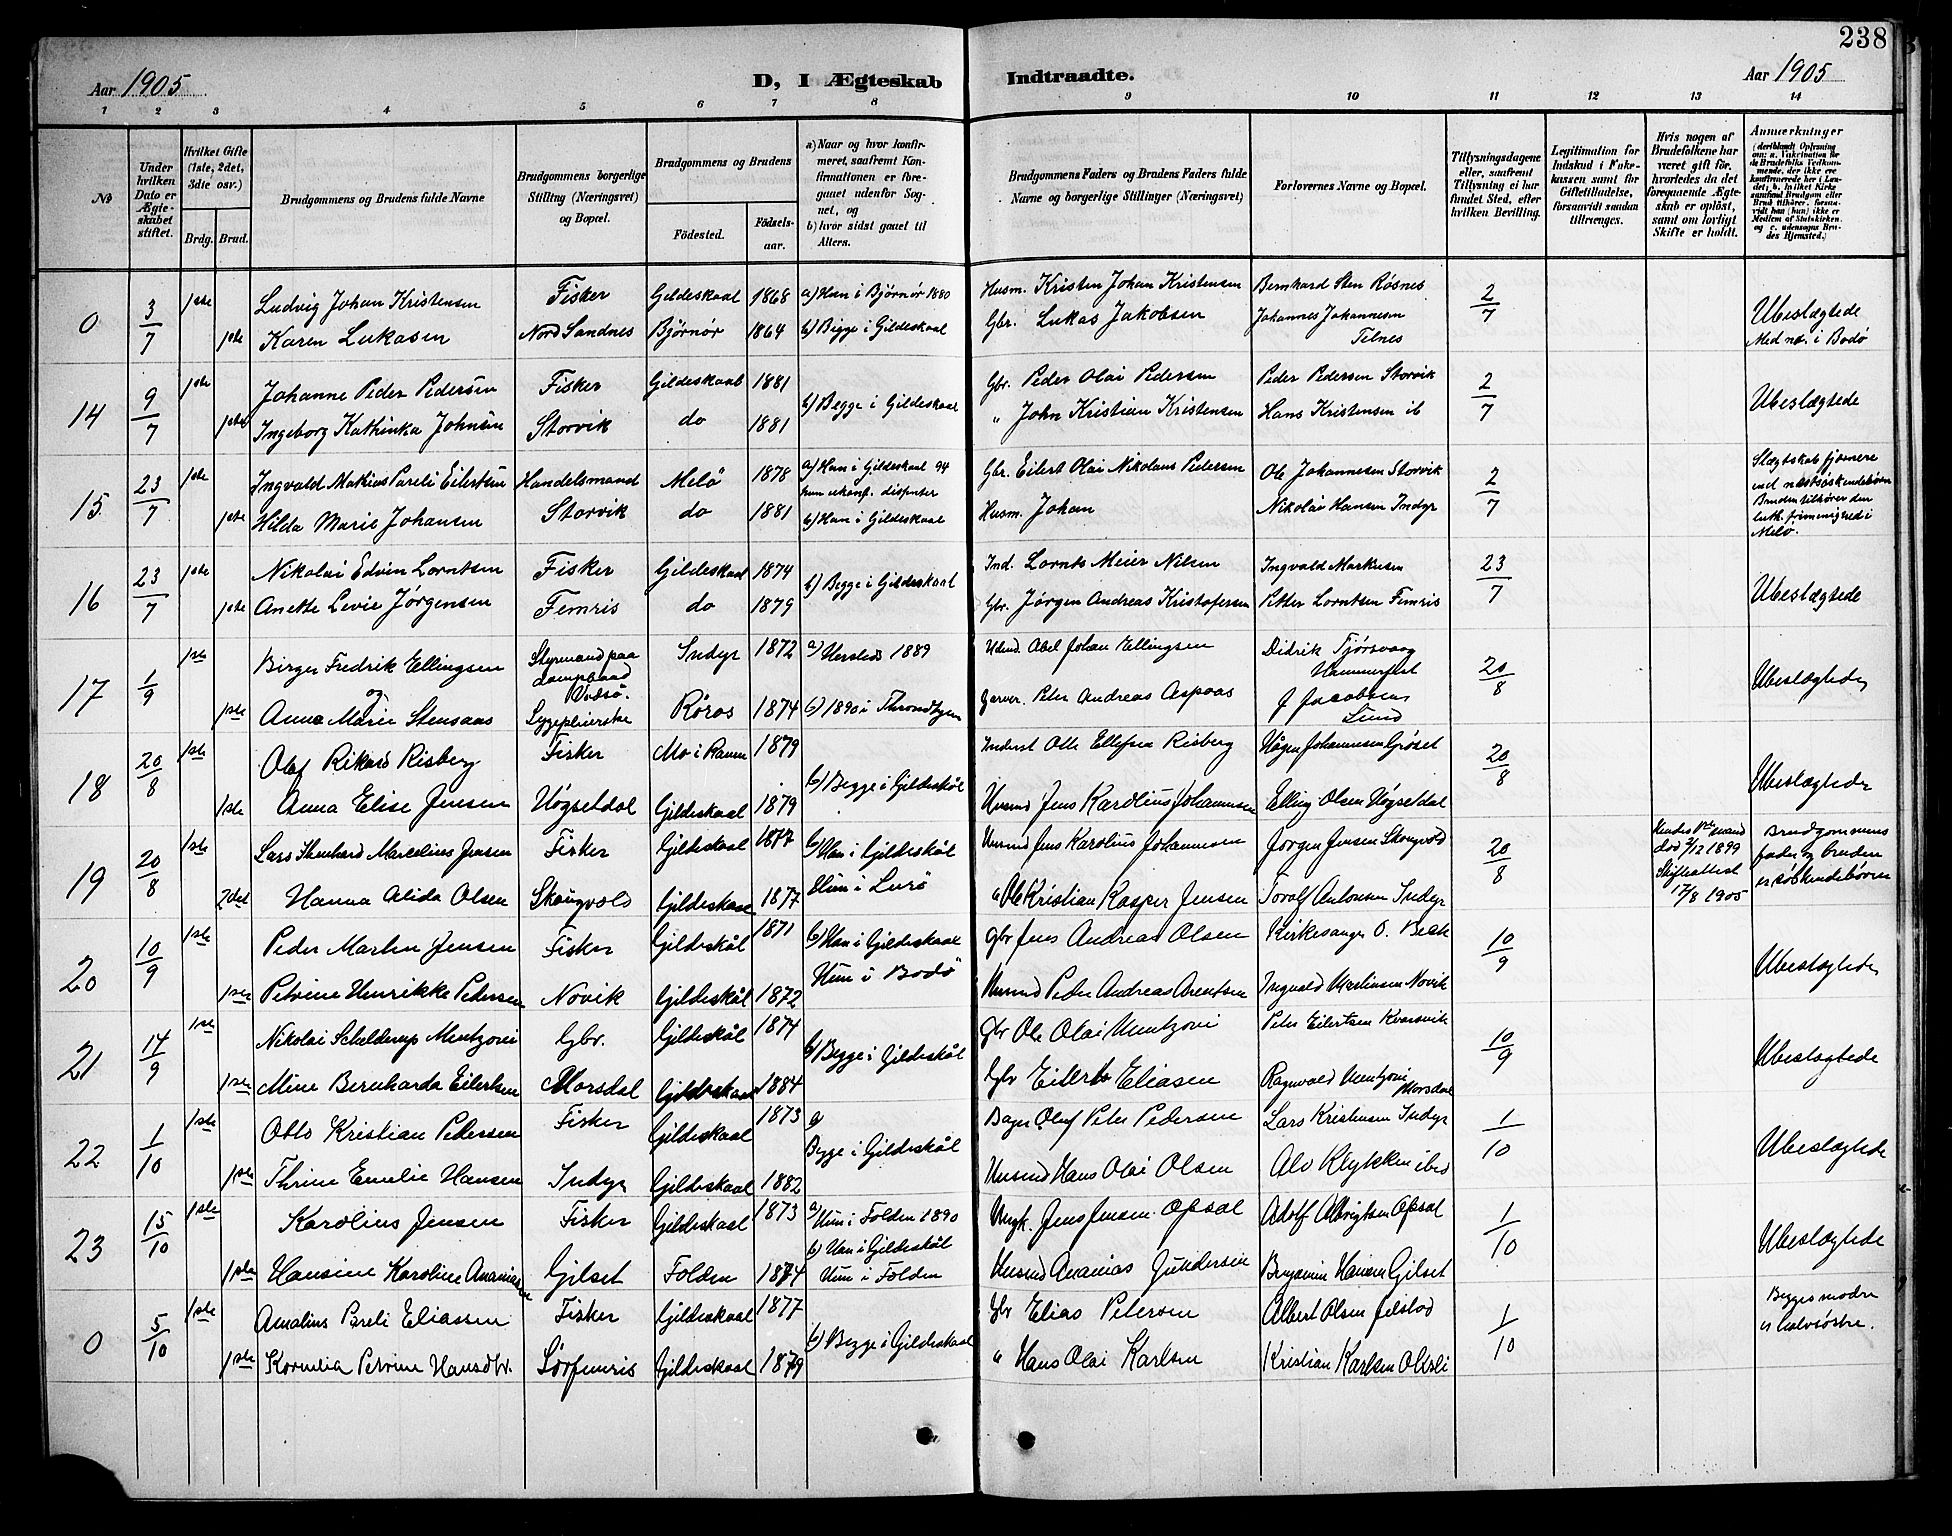 238
Aar 1905
D, I Ægteskab Indtraadte.
Aar 1905
1 2 3 4 5 6 7 8 9 10 11 12 13 14
No
Under hvilken Dato er Ægteskabet stiftet.
Hvilket Gifte (1ste, 2det, 3die osv.)
Brdg. Brud.
Brudgommens og Brudens fulde Navne
Brudgommens borgerlige Stilling (Næringsvei) og Bopæl.
Brudgommens og Brudens
Fødested.
Fødselsaar.
a) Naar og hvor konfirmeret, saafremt Konfirmationen er foregaaet udenfor Sognet, og
b) hvor sidst gaaet til Alters.
Brudgommens Faders og Brudens Faders fulde Navne og borgerlige Stillinger (Næringsvei)
Forlovernes Navne og Bopæl.
Tillysningsdagene eller, saafremt Tillysning ei har fundet Sted, efter hvilken Bevilling.
Legitimation for Indskud i Enkekassen samt for Giftetilladelse, forsaavidt saadan tiltrænges.
Hvis nogen af Brudefolkene har været gift før, hvorledes da det foregaaende Ægteskab er opløst, samt om lovligt Skifte er holdt.
Anmærkninger
(deriblandt Oplysning om: a. Vakcination for de Brudefolks Vedkommende, der ikke ere konfirmerede her i Landet; b. hvilket Kirkesamfund Brudgom eller Brud tilhører, forsaavidt han (hun) ikke er Medlem af Statskirken, og c. udensogns Brudes Hjemsted.)
0 3/7 1ste Ludvig Johan Kristensen Fisker Gildeskaal 1868 a) Hun i Bjørnør 1880 Husm. Kristen Johan Kristensen Bernhard Sten Røsnes 2/7 Ubeslægtede
1ste Karen Lukasen Nord Sandnes Bjørnør 1864 b) Begge i Gildeskaal Gbr. Lukas Jakobsen Johannes Johannesen Telnes Med næ. i Bodø
14 9/7 1ste Johanne Peder Pedersen Fisker Gildeskaal 1881 b) Begge i Gildeskaal Gbr. Peder Olai Pedersen Peder Pedersen Storvik 2/7 Ubeslægtede
1ste Ingeborg Kathinka Johnsen Storvik do 1881 " John Kristian Kristensen Hans Kristensen ib
15 23/7 1ste Ingvald Mathias Pareli Eilertsen Handelsmand Melø 1878 a) Han i Gildeskaal 94 Gbr. Eilert Olai Nikolaus Pedersen Ole Johannesen Storvik 2/7 Slægtskab fjernere
hun ukonf. dispenser end næstsøskendebørn
1ste Hilda Marie Johansen Storvik do 1881 b) Han i Gildeskaal Husm. Johan Nikolai Hansen Indyr Bruden tilhører den luth. frimenighed i Melø.
16 23/7 1ste Nikolai Edvin Lorntsen Fisker Gildeskaal 1874 b) Begge i Gildeskaal Ind. Lornts Meier Nilsen Ingvald Markusen 23/7 Ubeslægtede
1ste Anette Levie Jørgensen Femris do 1879 Gbr. Jørgen Andreas Kristofersen Petter Lorntsen Femris
17 1/9 1ste Birger Fredrik Ellingsen Styrmand paa Indyr 1872 a) 1889 Abel Johan Ellingsen Didrik Tjørsvaag Hammerfest 20/8 Ubeslægtede
og Vadsø.
1ste Anna Marie Stensaas Sygepleierske Røros 1874 b) 1890 i Throndhjem Garver. Peter Andreas Aspaas J Jacobsen Lund
18 20/8 1ste Olaf Rikard Risberg Fisker Mo i Ranen 1879 b) Begge i Gildeskål Inderst Ole Ellefsen Risberg Hågen Johannesen Grøset 20/8 Ubeslægtede
1ste Anna Elise Jensen Høgsetdal Gildeskaal 1879 Husmd Jens Karolius Johannesen Elling Olsen Høgsetdal
19 20/8 1ste Lars Stenhard Marcelius Jensen Fisker Gildeskaal 1877 b) Han i Gildeskål Husmd Jens Karolius Johannesen Jørgen Jensen Skougvold 20/8 Hendes 1ste mand død 5/12 1899 Skifteattest 17/8 1905 Brudgommens fader og bruden er søskendebørn
2det Hanna Alida Olsen Skougvold Gildeskaal 1877 Hun i Lurø " Ole Kristian Kasper Jensen Torolf Antonsen Indyr
20 10/9 1ste Peder Martin Jensen Fisker Gildeskål 1871 b) Han i Gildeskaal Gbr Jens Andreas Olsen Kirkesanger O. Beck 10/9 Ubeslægtede
1ste Petrine Henrikke Pedersen Novik Gildeskål 1872 Hun i Bodø Husmd Peder Andreas Arentsen Ingvald Martinsen Novik
21 14/9 1ste Nikolai Schelderup Mentzoni Gbr. Gildeskål 1874 b) Begge i Gildeskål Gbr Ole Olai Mentzoni Peter Eilertsen Kvarsvik 10/9 Ubeslægtede
1ste Mine Bernharda Eilertsen Morsdal Gildeskaal 1884 Gbr Eilert Eliasen Ragnvald Mentzoni Morsdal
22 1/10 1ste Otto Kristian Pedersen Fisker Gildeskaal 1873 Begge i Gildeskål Bager Oluf Peter Pedersen Lars Kristensen Indyr 1/10 Ubeslægtede
1ste Thrine Emelie Hansen Indyr Gildeskaal 1882 Husmd Hans Olai Olsen Alv Klykken ibid
23 15/10 1ste Karolius Jensen Fisker Gildeskaal 1873 a) Hun i Folden 1890 Ungk. Jens Jensen Opsal Adolf Albrigtsen Opsal 1/10 Ubeslægtede
b) Han i Gildeskål
1ste Hansine Karoline Ananiasen Gilset Folden 1874 Hun i Folden Husmd Ananias Gundersen Benjamin Hansen Gilset
0 5/10 1ste Amalius Pareli Eliassen Fisker Gildeskaal 1877 b) Begge i Gildeskaal Gbr Elias Petersen Albert Olsen Jelstad 1/10 Begges modre er halvsøstre.
1ste Kornelia Petrine Hansdtr. Sørfemris Gildeskaal 1879 " Hans Olai Karlsen Kristian Karlsen